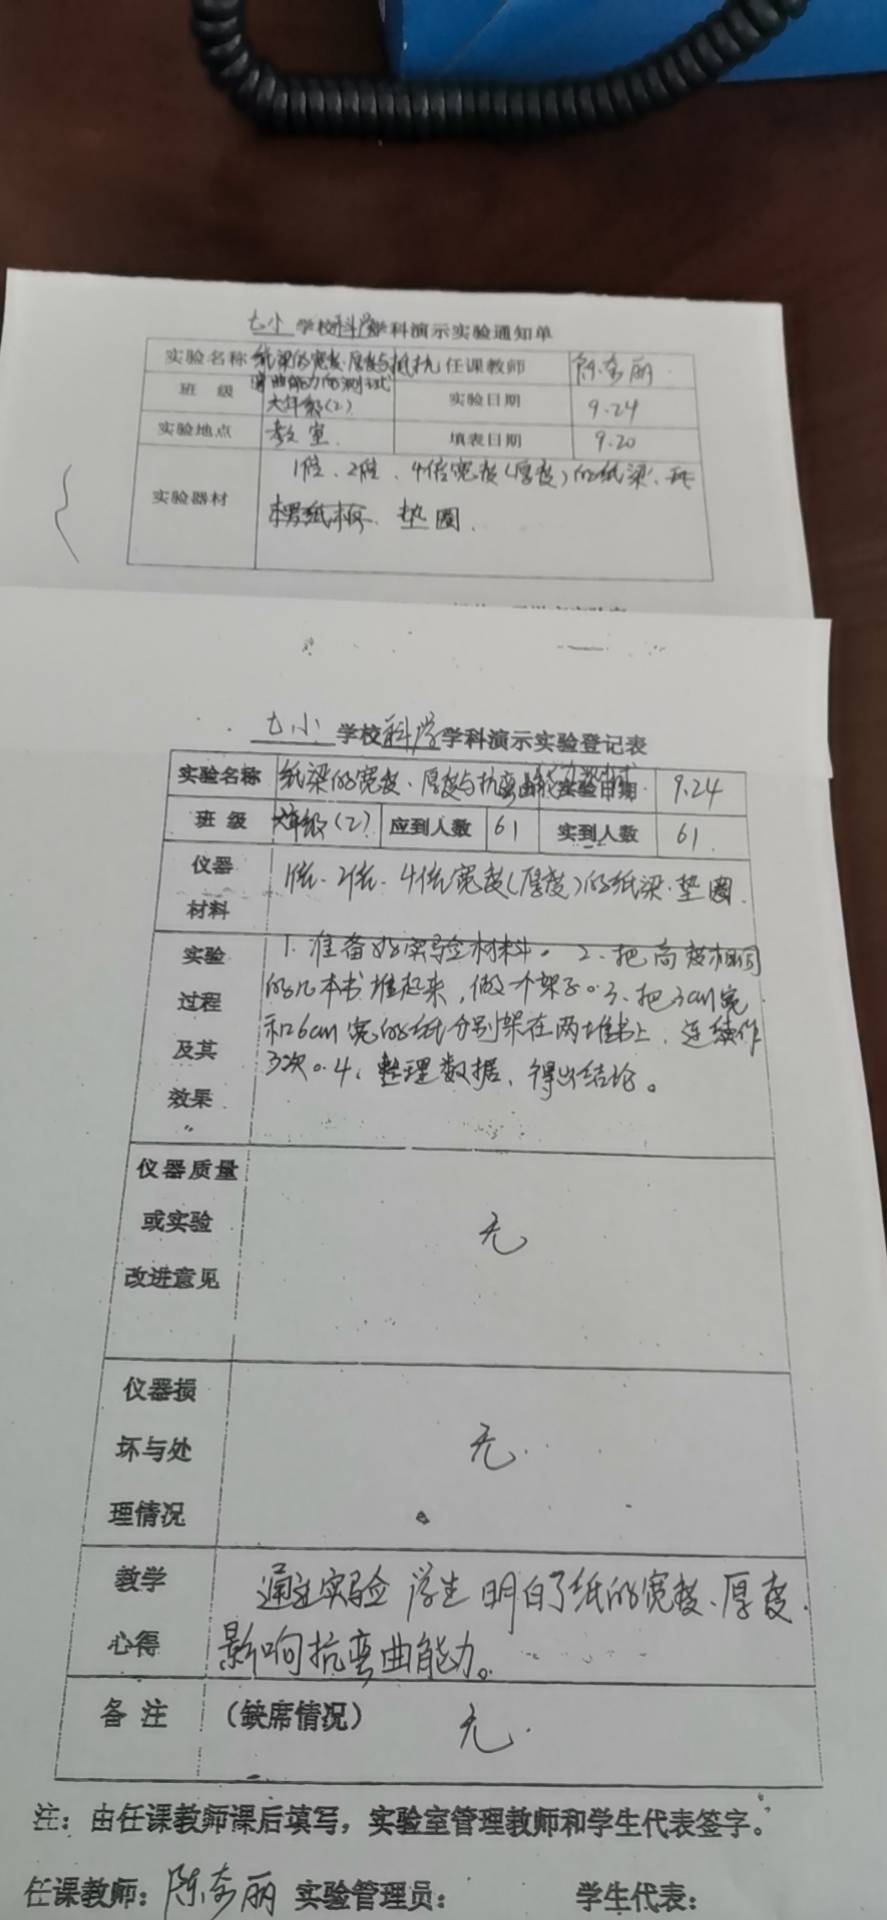 七小 学校科学学科演示实验通知单
实验名称 纸梁的宽度、厚度与抵抗弯曲能力的测试 任课教师 陈 丽
班 级 六年级(2) 实验日期 9.24
实验地点 教室. 填表日期 9.20
实验器材 1倍、2倍、4倍宽度(厚度)的纸梁、瓦
楞纸板、垫圈.
七小 学校科学学科演示实验登记表
实验名称 纸梁的宽度、厚度与抗弯曲 实验日期 9.24
班 级 六年级(2) 应到人数 61 实到人数 61
仪器
材料
1倍、2倍、4倍宽度(厚度)的纸梁.垫圈.
实验
过程
及其
效果
1. 准备好实验材料。2、把高度相同
的几本书堆起来,做个架子。3、把3cm宽
和6cm宽的纸分别架在两堆书上,连续作
3次。4、整理数据、得出结论。
仪器质量
或实验
改进意见
无
仪器损
坏与处
理情况
无.
教学
心得
通过实验 学生明白了纸的宽度、厚度.
影响抗弯曲能力。
备 注 (缺席情况) 无.
注:由任课教师课后填写,实验室管理教师和学生代表签字。
任课教师:陈 丽 实验管理员: 学生代表: